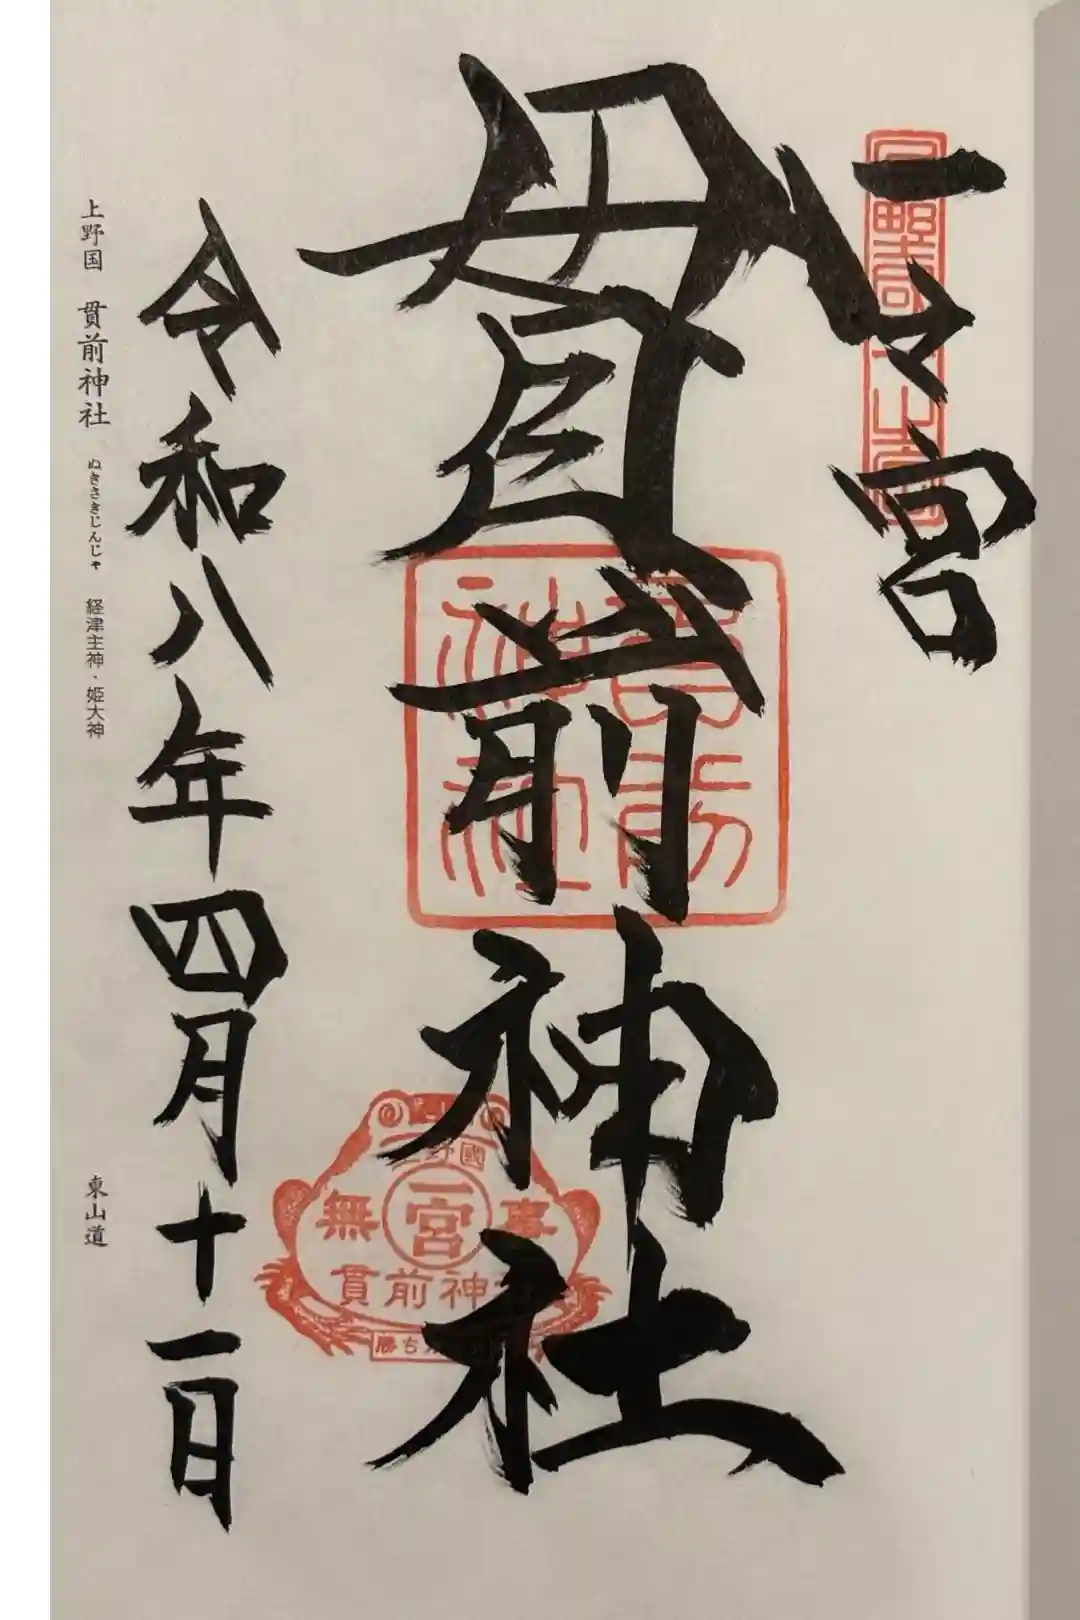 一之宮
貫前神社
上野國
一宮
無事
貫前神
勝ち
令和八年四月十一日
上野国 貫前神社 ぬきさきじんじゃ 経津主神・姫大神
東山道